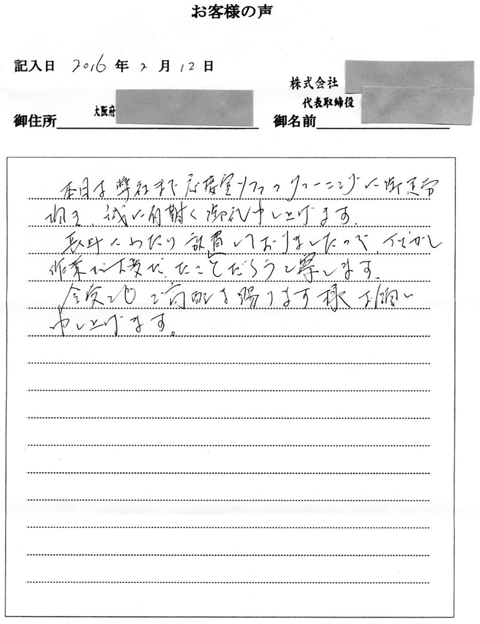 お客様の声
記入日 2016年2月12日
株式会社
大阪府
代表取締役
御住所
御名前
本日は弊社まで応接室ソファのクリーニングに御足労
頂き、誠に有難く御礼申し上げます。
長年にわたり放置しておりましたので さぞかし
作業が大変だったことだろうと察します。
今後とも ご高配を賜ります様 お願い
申し上げます。